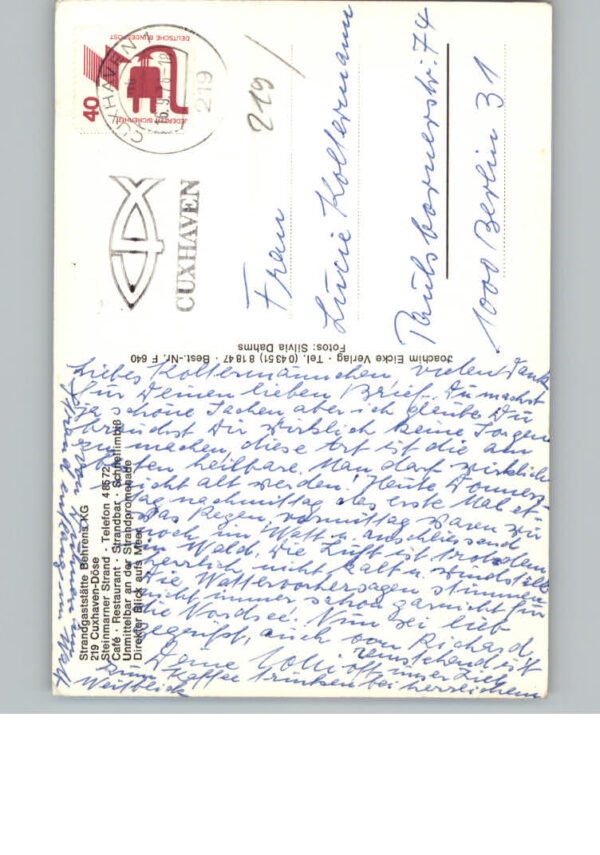 40
DEUTSCHE BUNDESPOST
JEDERZEIT SICHERHEIT
CUXHAVEN
219
CUXHAVEN
219/
Frau
Lucie Koltermann
Paulsbornerstr. 74
1000 Berlin 31
Joachim Eicke Verlag · Tel. (04351) 81847 · Best.-Nr. F 640
Fotos: Silvia Dahms
Strandgaststätte Behrens KG
219 Cuxhaven-Döse
Steinmarner Strand · Telefon 48572
Café · Restaurant · Strandbar · Schnellimbiß
Unmittelbar an der Strandpromenade
Direkter Blick aufs Meer
Liebes Koltermännchen, vielen Dank
für Deinen lieben Brief. Du machst
ja schöne Sachen aber ich glaube Du
brauchst Dir wirklich keine Sorgen
zu machen, diese Art ist die am
besten heilbare. Man darf wirklich
nicht alt werden! Heute Donners-
tag nachmittag das erste Mal et-
was Regen, vormittag waren wir
noch im Watt u. anschliessend
im Wald. Die Luft ist trotzdem
herrlich nicht kalt u. windstill
Die Wettervorhersagen stimmen
nicht immer schon garnicht für
die Nordsee. Nun sei lieb
gegrüßt, auch von Richard
Deine
oft unser Ziel
zum Kaffee trinken bei herrlichem
Weitblick